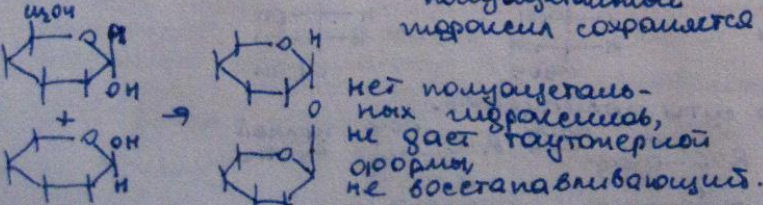 гидроксил сохраняется
CH₂OH
O
H
OH
+
O
OH
H
→
O
H
O
O
нет полуацеталь-
ных гидроксилов,
не дает таутомерной
формы,
не восстанавливающий.